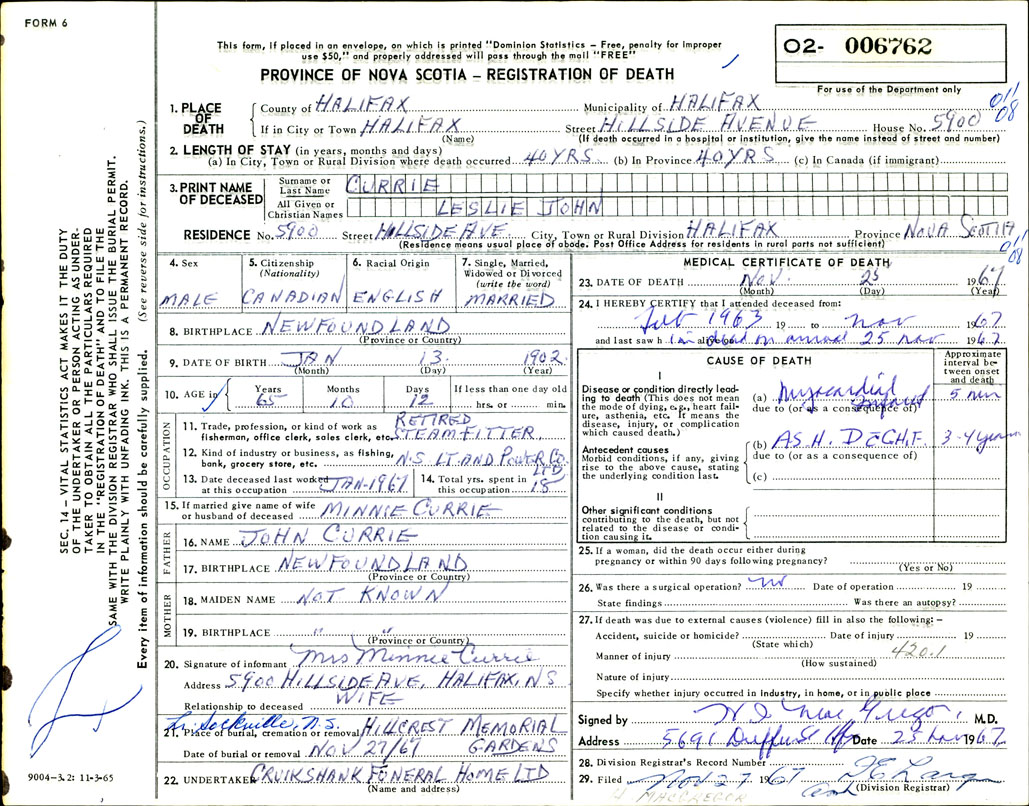 FORM 6
This form, if placed in an envelope, on which is printed "Dominion Statistics – Free, penalty for improper
use $50," and properly addressed will pass through the mail "FREE"
PROVINCE OF NOVA SCOTIA – REGISTRATION OF DEATH
02- 006762
For use of the Department only
011
08
1. PLACE OF DEATH
County of HALIFAX Municipality of HALIFAX
If in City or Town HALIFAX Street HILLSIDE AVENUE House No. 5900
(Name) (If death occurred in a hospital or institution, give the name instead of street and number)
2. LENGTH OF STAY (in years, months and days)
(a) In City, Town or Rural Division where death occurred 40 YRS (b) In Province 40 YRS (c) In Canada (if immigrant)
3. PRINT NAME OF DECEASED
Surname or Last Name CURRIE
All Given or Christian Names LESLIE JOHN
RESIDENCE No. 5900 Street HILLSIDE AVE. City, Town or Rural Division HALIFAX Province NOVA SCOTIA
(Residence means usual place of abode. Post Office Address for residents in rural parts not sufficient)
011
08
4. Sex
MALE
5. Citizenship (Nationality)
CANADIAN
6. Racial Origin
ENGLISH
7. Single, Married, Widowed or Divorced (write the word)
MARRIED
8. BIRTHPLACE NEWFOUNDLAND
(Province or Country)
9. DATE OF BIRTH JAN 13. 1902.
(Month) (Day) (Year)
10. AGE in
Years 65 Months 10 Days 12 If less than one day old
hrs. or min.
OCCUPATION
11. Trade, profession, or kind of work as fisherman, office clerk, sales clerk, etc. RETIRED STEAMFITTER
12. Kind of industry or business, as fishing, bank, grocery store, etc. N.S LT. AND POWER CO. LTD
13. Date deceased last worked at this occupation JAN-1967
14. Total yrs. spent in this occupation 18
15. If married give name of wife or husband of deceased MINNIE CURRIE
FATHER
16. NAME JOHN CURRIE
17. BIRTHPLACE NEWFOUNDLAND
(Province or Country)
MOTHER
18. MAIDEN NAME NOT KNOWN
19. BIRTHPLACE " "
(Province or Country)
20. Signature of informant Mrs Minnie Currie
Address 5900 HILLSIDE AVE, HALIFAX, N S
Relationship to deceased WIFE
L. Sackville, N.S.
21. Place of burial, cremation or removal HILLCREST MEMORIAL GARDENS
Date of burial or removal NOV 27/67
22. UNDERTAKER CRUIKSHANK FUNERAL HOME LTD
(Name and address)
MEDICAL CERTIFICATE OF DEATH
23. DATE OF DEATH Nov. 25 1967
(Month) (Day) (Year)
24. I HEREBY CERTIFY that I attended deceased from:
Feb 1963 19 to Nov 1967
and last saw h im dead on arrival 25 nov 1967
CAUSE OF DEATH
Approximate interval between onset and death
I
Disease or condition directly leading to death (This does not mean the mode of dying, e.g., heart failure, asthenia, etc. It means the disease, injury, or complication which caused death.)
(a) Myocardial Infarct 5 min
due to (or as a consequence of)
Antecedent causes
Morbid conditions, if any, giving rise to the above cause, stating the underlying condition last.
(b) A.S.H. D \u0304C CH.F. 3-4 years
due to (or as a consequence of)
(c)
II
Other significant conditions
contributing to the death, but not related to the disease or condition causing it.
25. If a woman, did the death occur either during pregnancy or within 90 days following pregnancy?
(Yes or No)
26. Was there a surgical operation? no Date of operation 19
State findings Was there an autopsy?
27. If death was due to external causes (violence) fill in also the following: –
Accident, suicide or homicide? Date of injury 19
(State which)
420.1
Manner of injury
(How sustained)
Nature of injury
Specify whether injury occurred in industry, in home, or in public place
Signed by M.D.
Address 5691 Date 25 Nov 1967
28. Division Registrar's Record Number
29. Filed Nov 27 1967
(Division Registrar)
H MACGREGOR
SEC. 14 – VITAL STATISTICS ACT MAKES IT THE DUTY
OF THE UNDERTAKER OR PERSON ACTING AS UNDER-
TAKER TO OBTAIN ALL THE PARTICULARS REQUIRED
IN THE "REGISTRATION OF DEATH" AND TO FILE THE
SAME WITH THE DIVISION REGISTRAR WHO SHALL ISSUE THE BURIAL PERMIT.
WRITE PLAINLY WITH UNFADING INK. THIS IS A PERMANENT RECORD.
Every item of information should be carefully supplied. (See reverse side for instructions.)
9004-3.2: 11-3-65